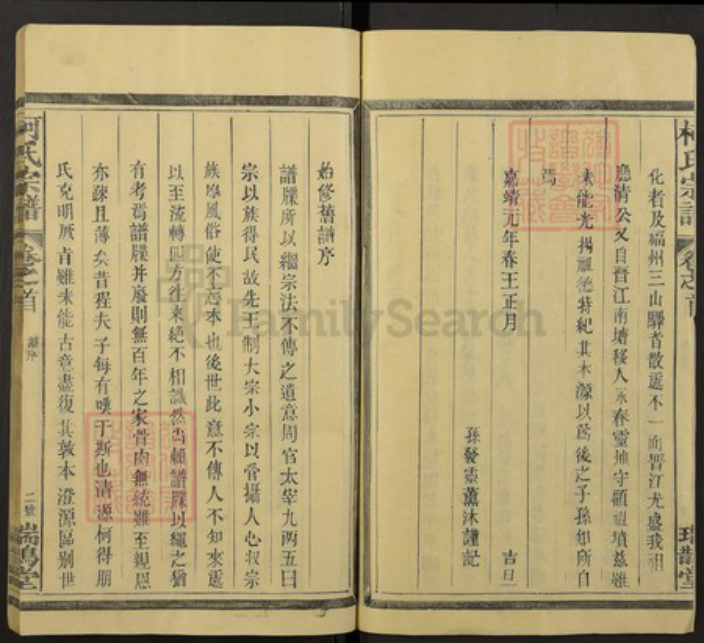 柯氏宗譜
卷之首
化者及福州三山驛者散遷不一而晉江尤盛我祖
應清公又自晉江南塘移人永春靈地守顧祖墳茲雖
未能光揚祖德特紀其木源以爲後之子孫知所自
焉
嘉靖元年春王正月 吉旦
孫發震薰沐謹記
始修舊譜序
譜牒所以繼宗法不傳之遺意周官太宰九兩五曰
宗以族得民故先王制大宗小宗以管攝人心收宗
族厚風俗使不忘本也後世此意不傳人不知來處
以至流轉四方往來絕不相識然尚賴譜牒以繩之猶
有考焉譜牒并廢則無百年之家骨肉無統雖至親恩
亦疎且薄矣昔程夫子每有嘆于斯也清源柯得朋
氏克明厥肯雖未能古意盡復其敦本澄源區別世
柯氏宗譜
卷之首
譜序
二號
瑞鵲堂
瑞鵲堂
FamilySearch